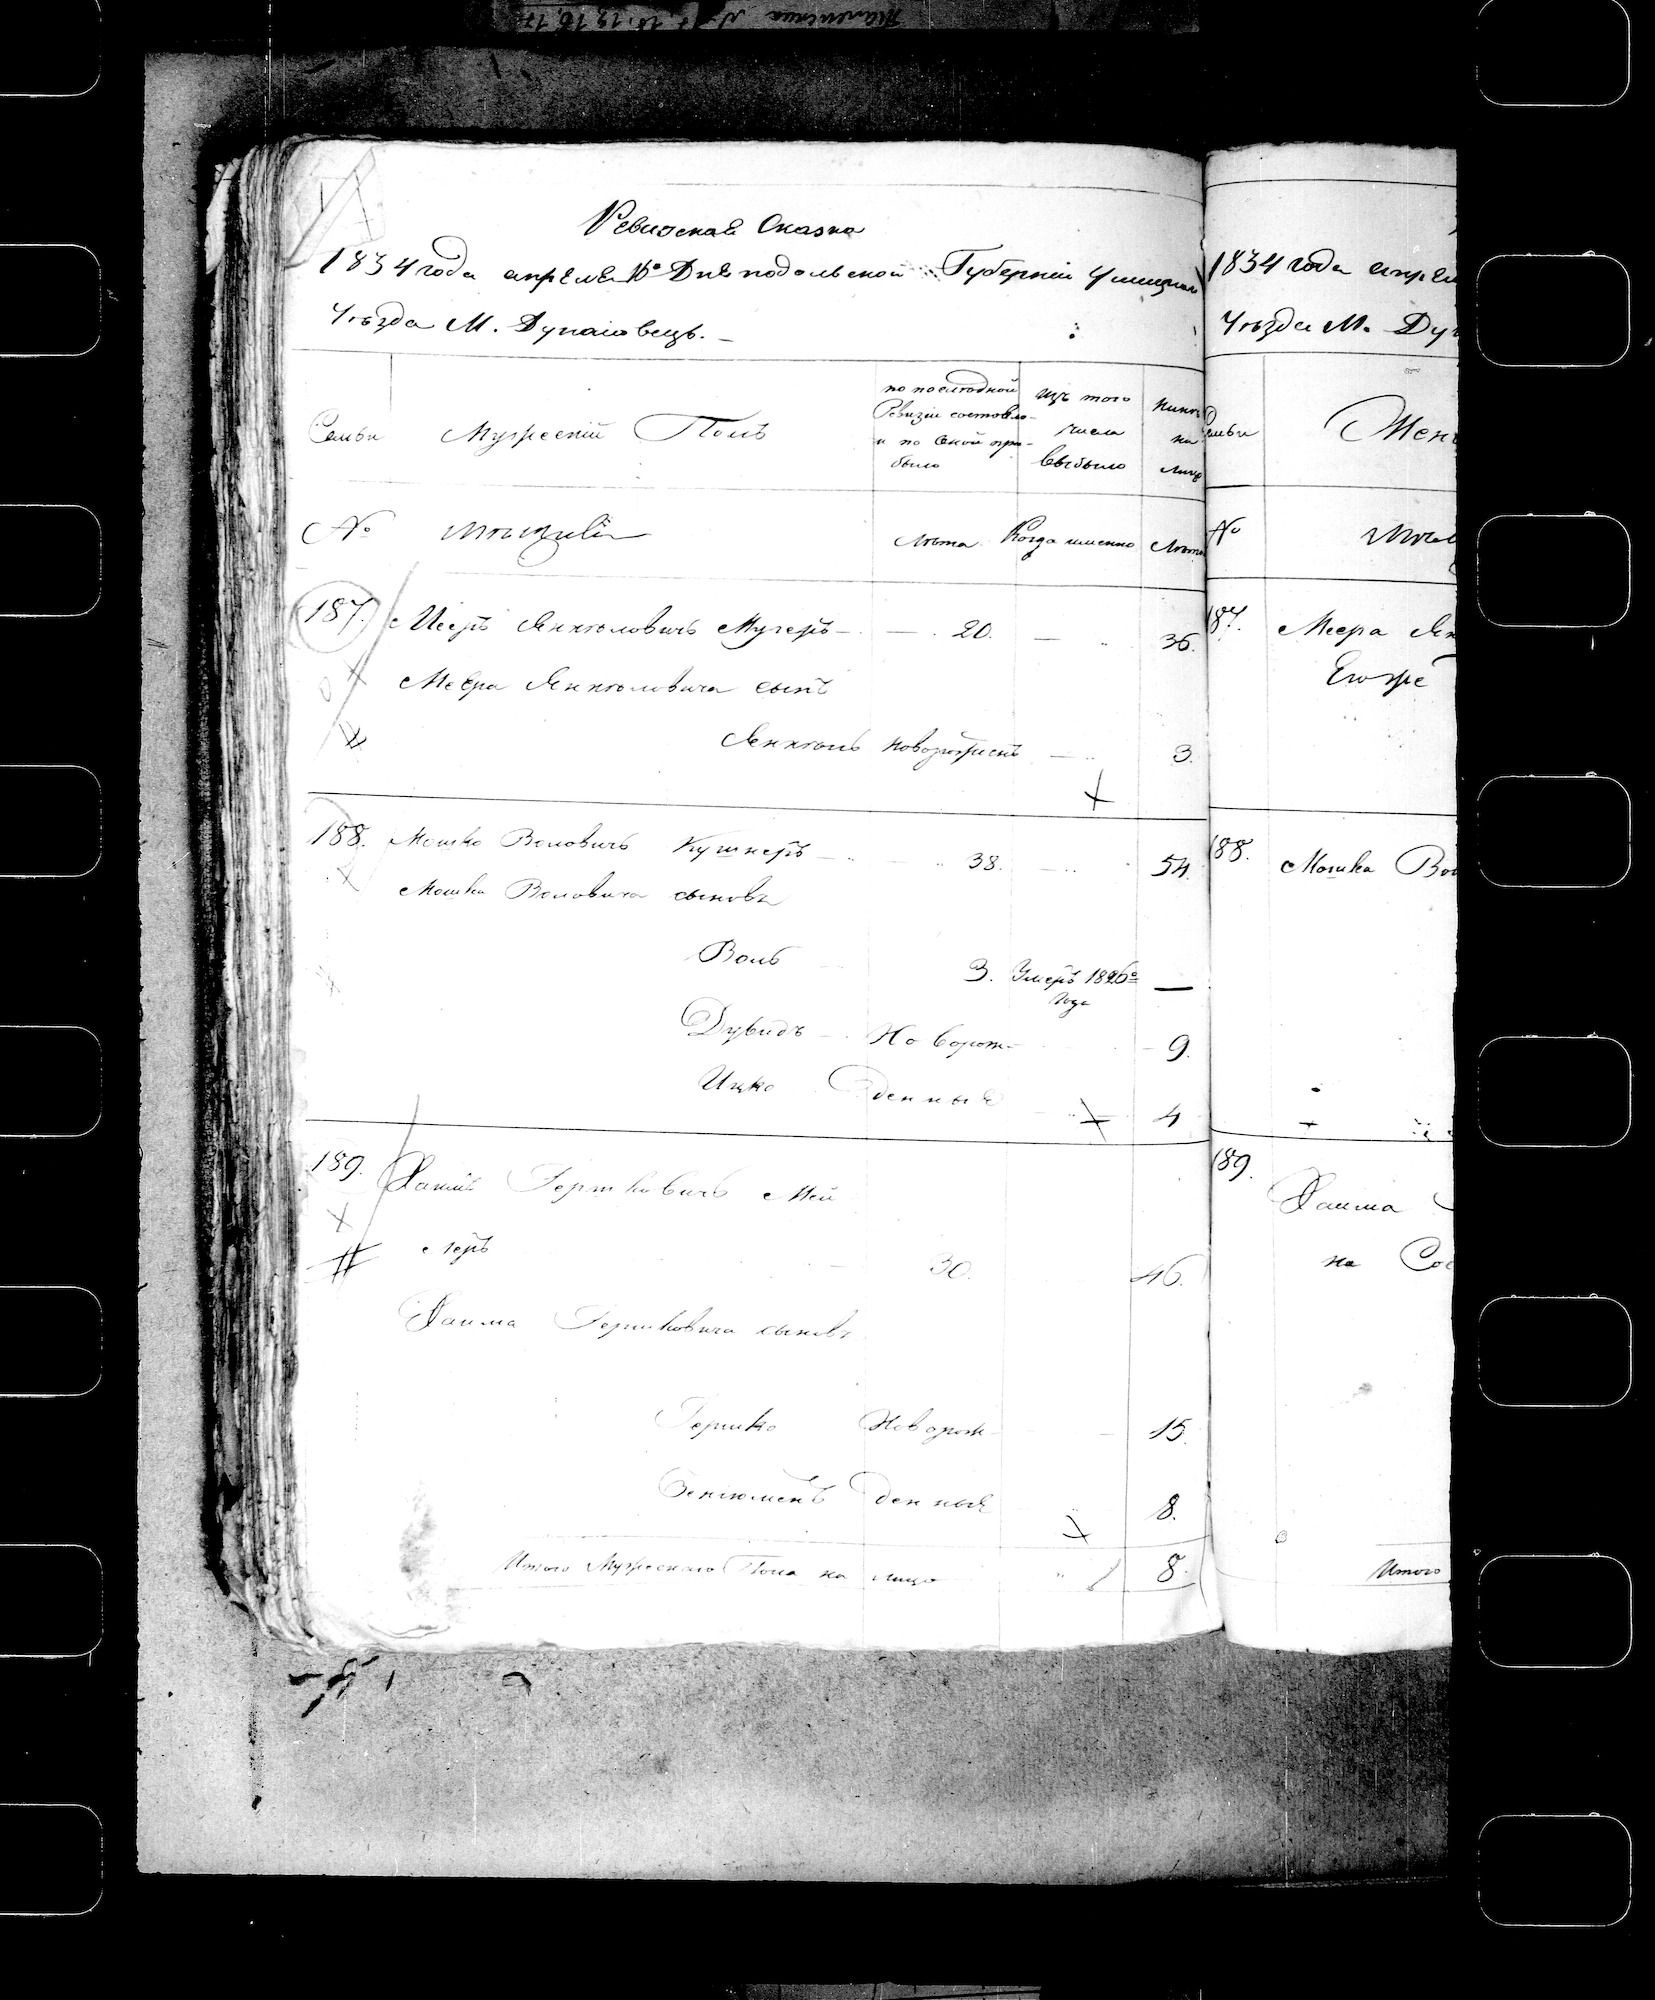 Ревизская Сказка
1834 года апреля 10 Дня подольской Губернiи Ушицкаго
Уѣзда М. Дунаiовецъ.
Семьи
Мужескiй Полъ
по последной
Ревизiи состояло
и по оной при-
было
изъ того
числа
выбыло
нынѣ
на
лице
№
мѣщане
Лѣта
Когда именно
Лѣта
187. Мееръ Янкеловичъ 20. 36.
Меера Янкеловича сынъ
Янкель новорожденъ 3.
188. Мошко Воловичъ Кушнеръ 38. 54.
Мошка Воловича сыновья
Воль 3. Умеръ 1826го —
года
Дувидъ Новорож- 9.
Ицко денныя 4
189. Хаимъ Гершковичъ Мей
леръ 30. 46.
Хаима Гершковича сыновья
Гершко Новорож- 15.
денныя 8.
Итого Мужескаго Пола на лицо 8.
1834 года апреля
Уѣзда М. Дун
Семьи
Жен
№
187. Меера Ян
188. Мошка Вол
189. Хаима
на
Итого